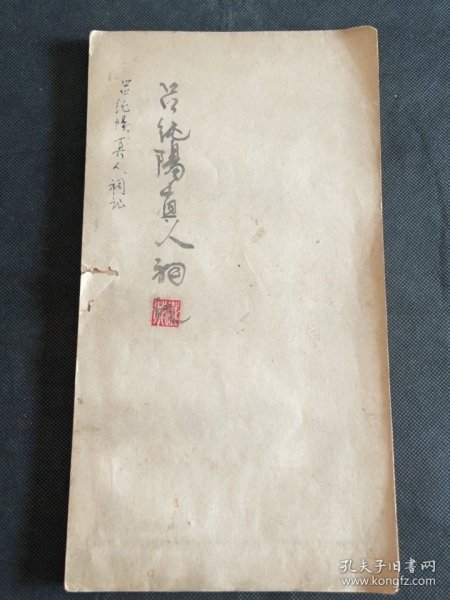 吕纯陽真人祠記
吕纯陽真人祠记
孔夫子旧书网
www.kongfz.com